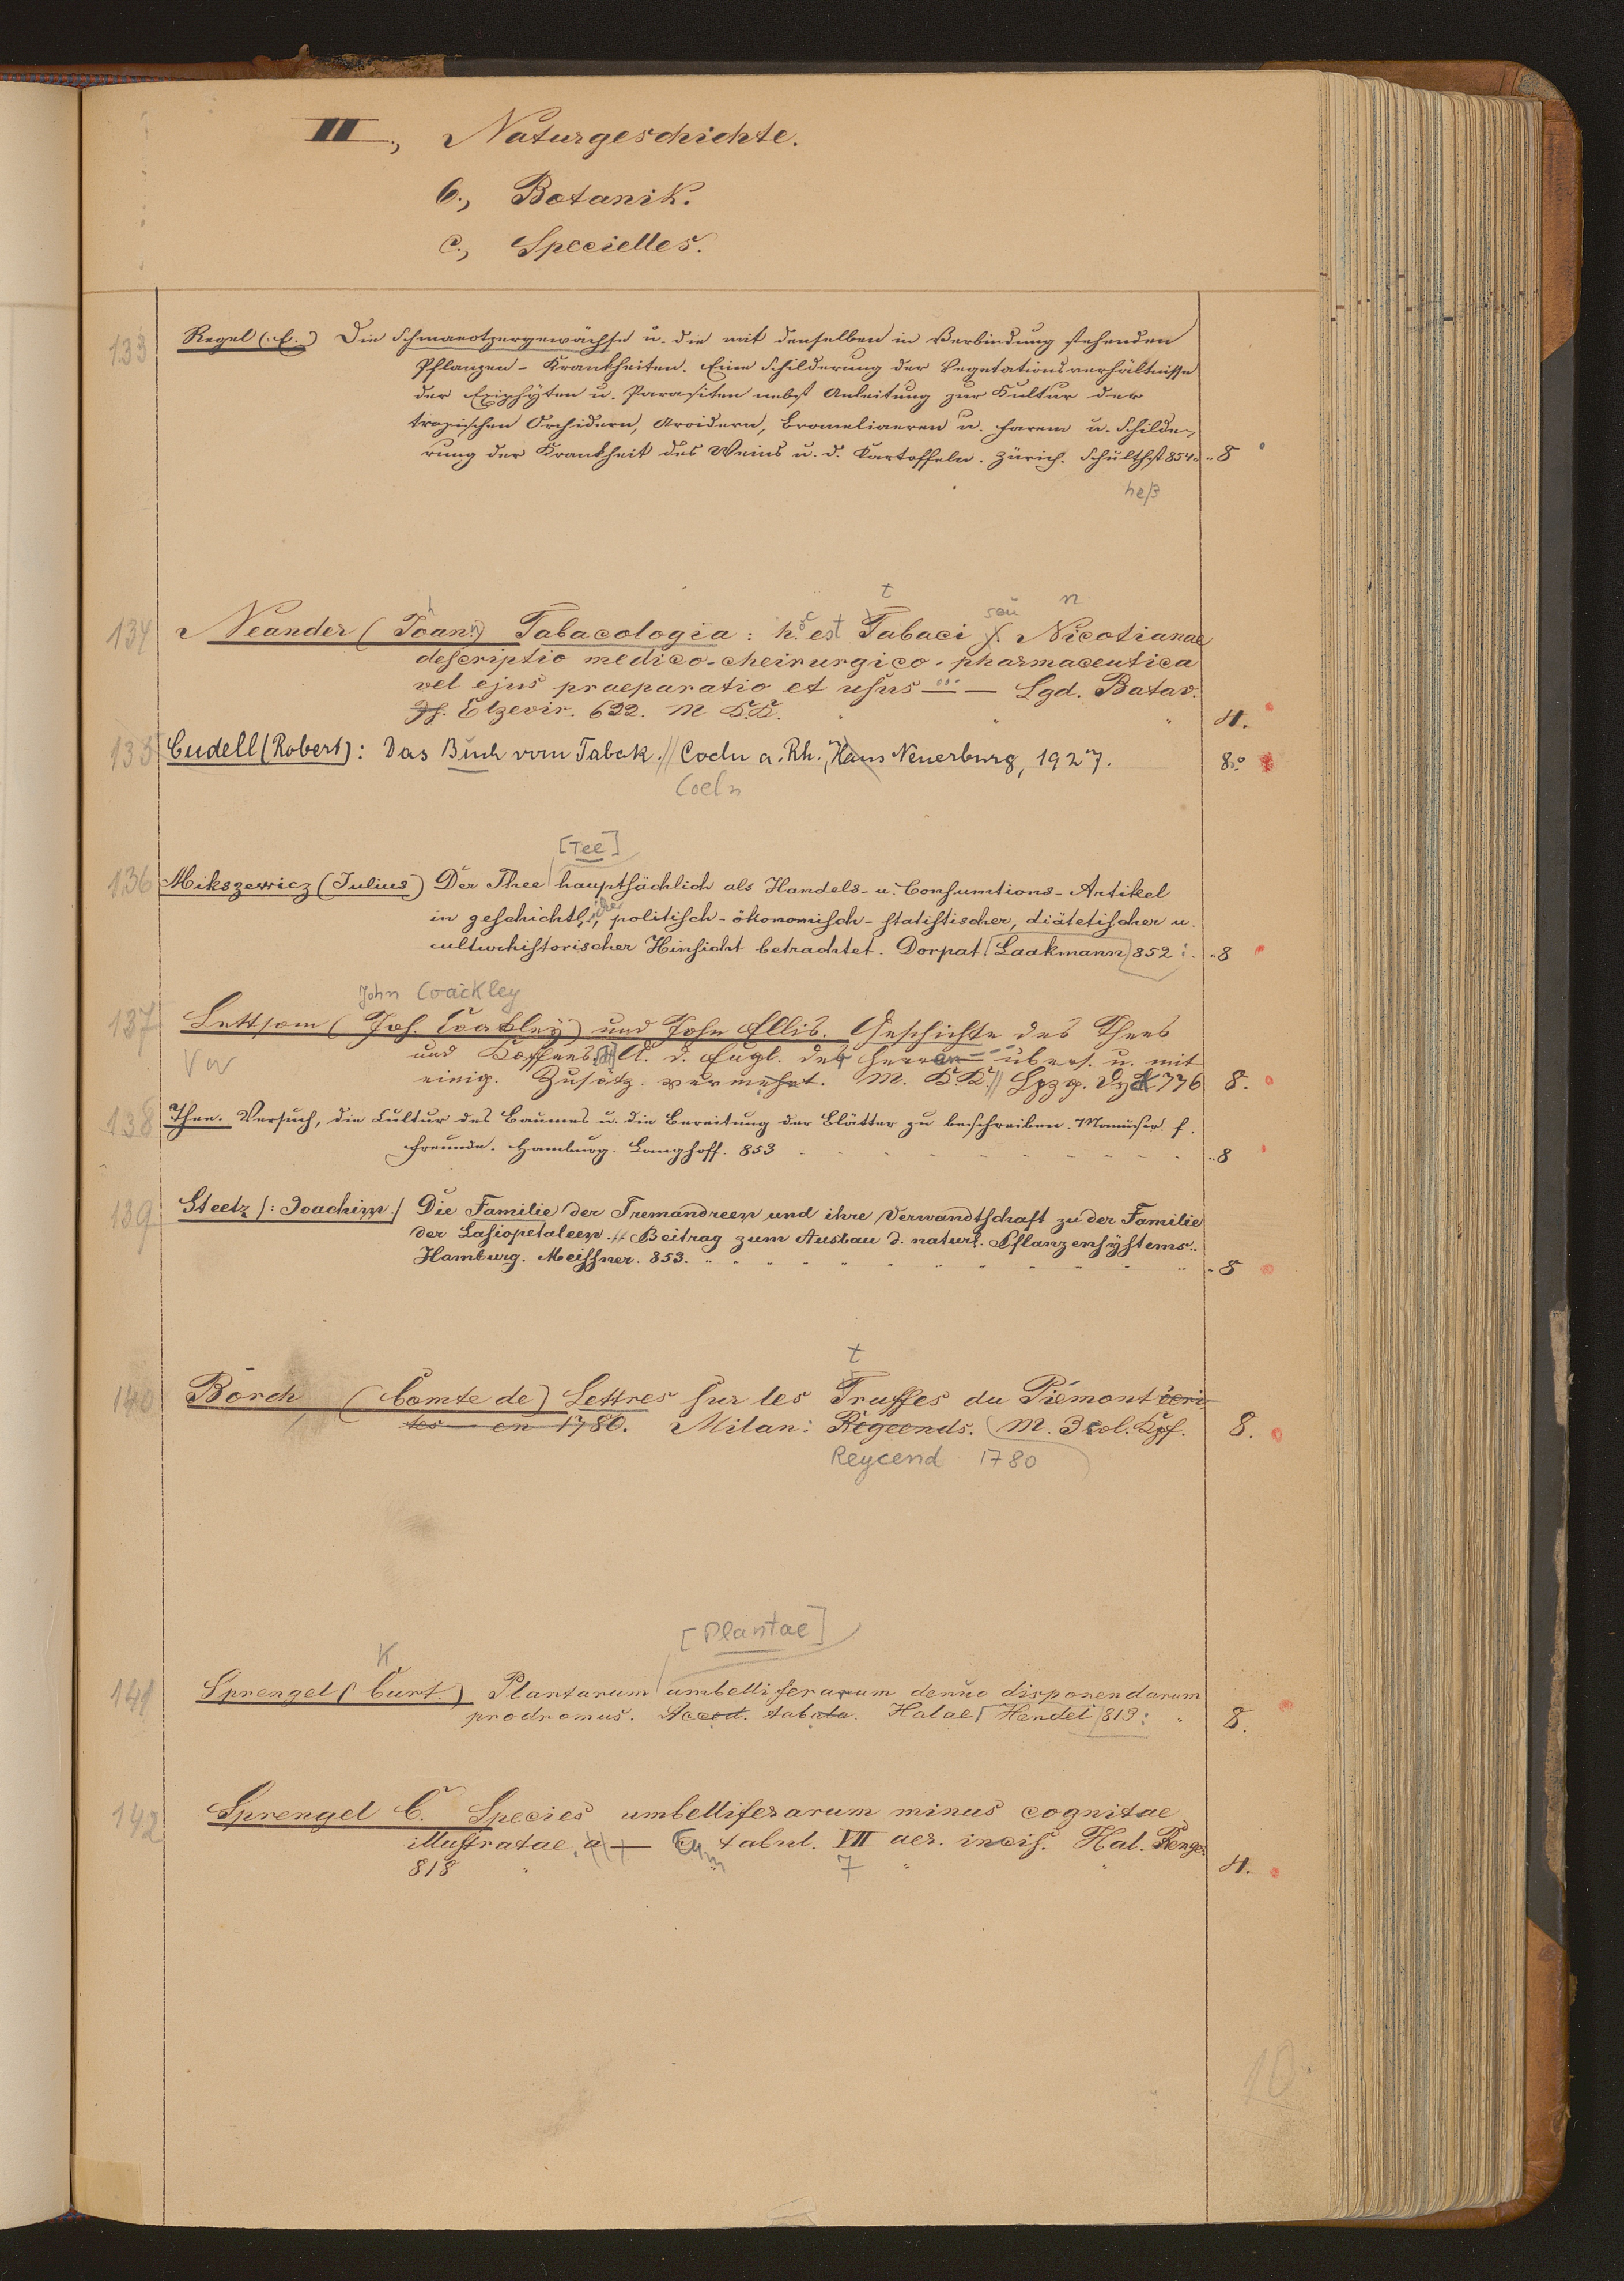 III., Naturgeschichte.
6., Botanik.
c., Specielles.
133 Regel (E.) Die Schmarotzergewächse u. die mit denselben in Verbindung stehenden
Pflanzen-Krankheiten. Eine Schilderung der Vegetationsverhältnisse
der Epiphÿten u. Parasiten nebst Anleitung zur Kultur der
tropischen Orchideen, Aroideen, Bromeliaceen u. Farern u. Schilde-
rung der Krankheit des Weins u. d. Kartoffeln. Zürich. Schülthst 854. 8
heß
t
seu n
134 Neander (Joan.) Tabacologia: h. est Tabaci s. Nicotianae
descriptio medico-cheirurgico-pharmaceutica
vel ejus praeparatio et usus — Lgd. Batav.
Js. Elzevir. 622. M K.K. 4.
135 Cudell (Robert): Das Buch vom Tabak. // Coeln a. Rh., Haus Neuerburg, 1927. 8.°
Coeln
[Tee]
136 Mikszewicz (Julius) Der Thee hauptsächlich als Handels- u. Consumtions-Artikel
in geschichtl., politisch-ökonomisch-statistischer, diätetischer u.
culturhistorischer Hinsicht betrachtet. Dorpat. [Laakmann] 852: 8
John Coackley
137 Lettsom (Joh. Coakley) und John Ellis. Geschichte des Thees
und Koffees. A. d. Engl. der Herren übers. u. mit
einig. Zusätz. vermehrt. M. K.K. // Lpzg. Dyck 776 8.
138 Thee. Versuch, die Cultur des Baumes u. die Bereitung der Blätter zu beschreiben. Manuscr. f.
Freunde. Hamburg. Langhoff. 853 8
139 Steetz /: Joachim./ Die Familie der Tremandreen und ihre Verwandtschaft zu der Familie
der Lasiopetaleen. // Beitrag zum Ausbau d. natürl. Pflanzensÿstems..
Hamburg. Meissner. 853. 8
t
140 Borch (Comte de) Lettres sur les Truffes du Piémont écri-
tes — en 1780. Milan: Regeends. (M. 3 col. Kpf. 8.
Reycend 1780
[Plantae]
K
141 Sprengel (Curt.) Plantarum umbelliferarum denuo disponendarum
prodromus. Acced. tabula. Halae [Hendel] 813: 8.
142 Sprengel C. Species umbelliferarum minus cognitae
illustratae, a — Cum tabul. VII aer. incis. Hal. Renger
818 7 4.
10